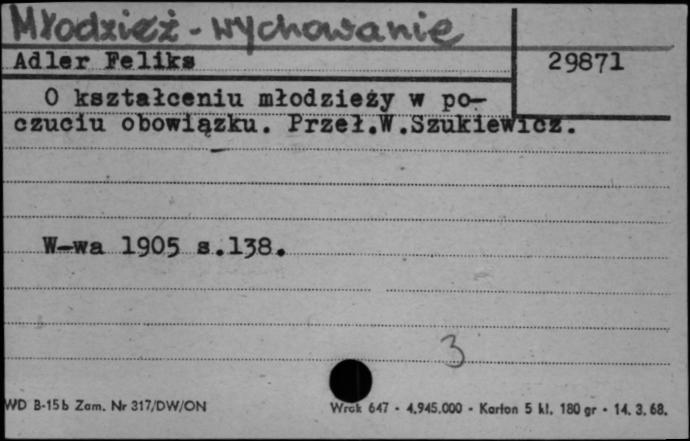 Młodzież - wychowanie
Adler Feliks 29871
O kształceniu młodzieży w po-
czuciu obowiązku. Przeł.W.Szukiewicz.
W-wa 1905 s.138.
3
WD B-15b Zam. Nr 317/DW/ON Wrok 647 - 4.945.000 - Karton 5 kl. 180 gr - 14. 3. 68.